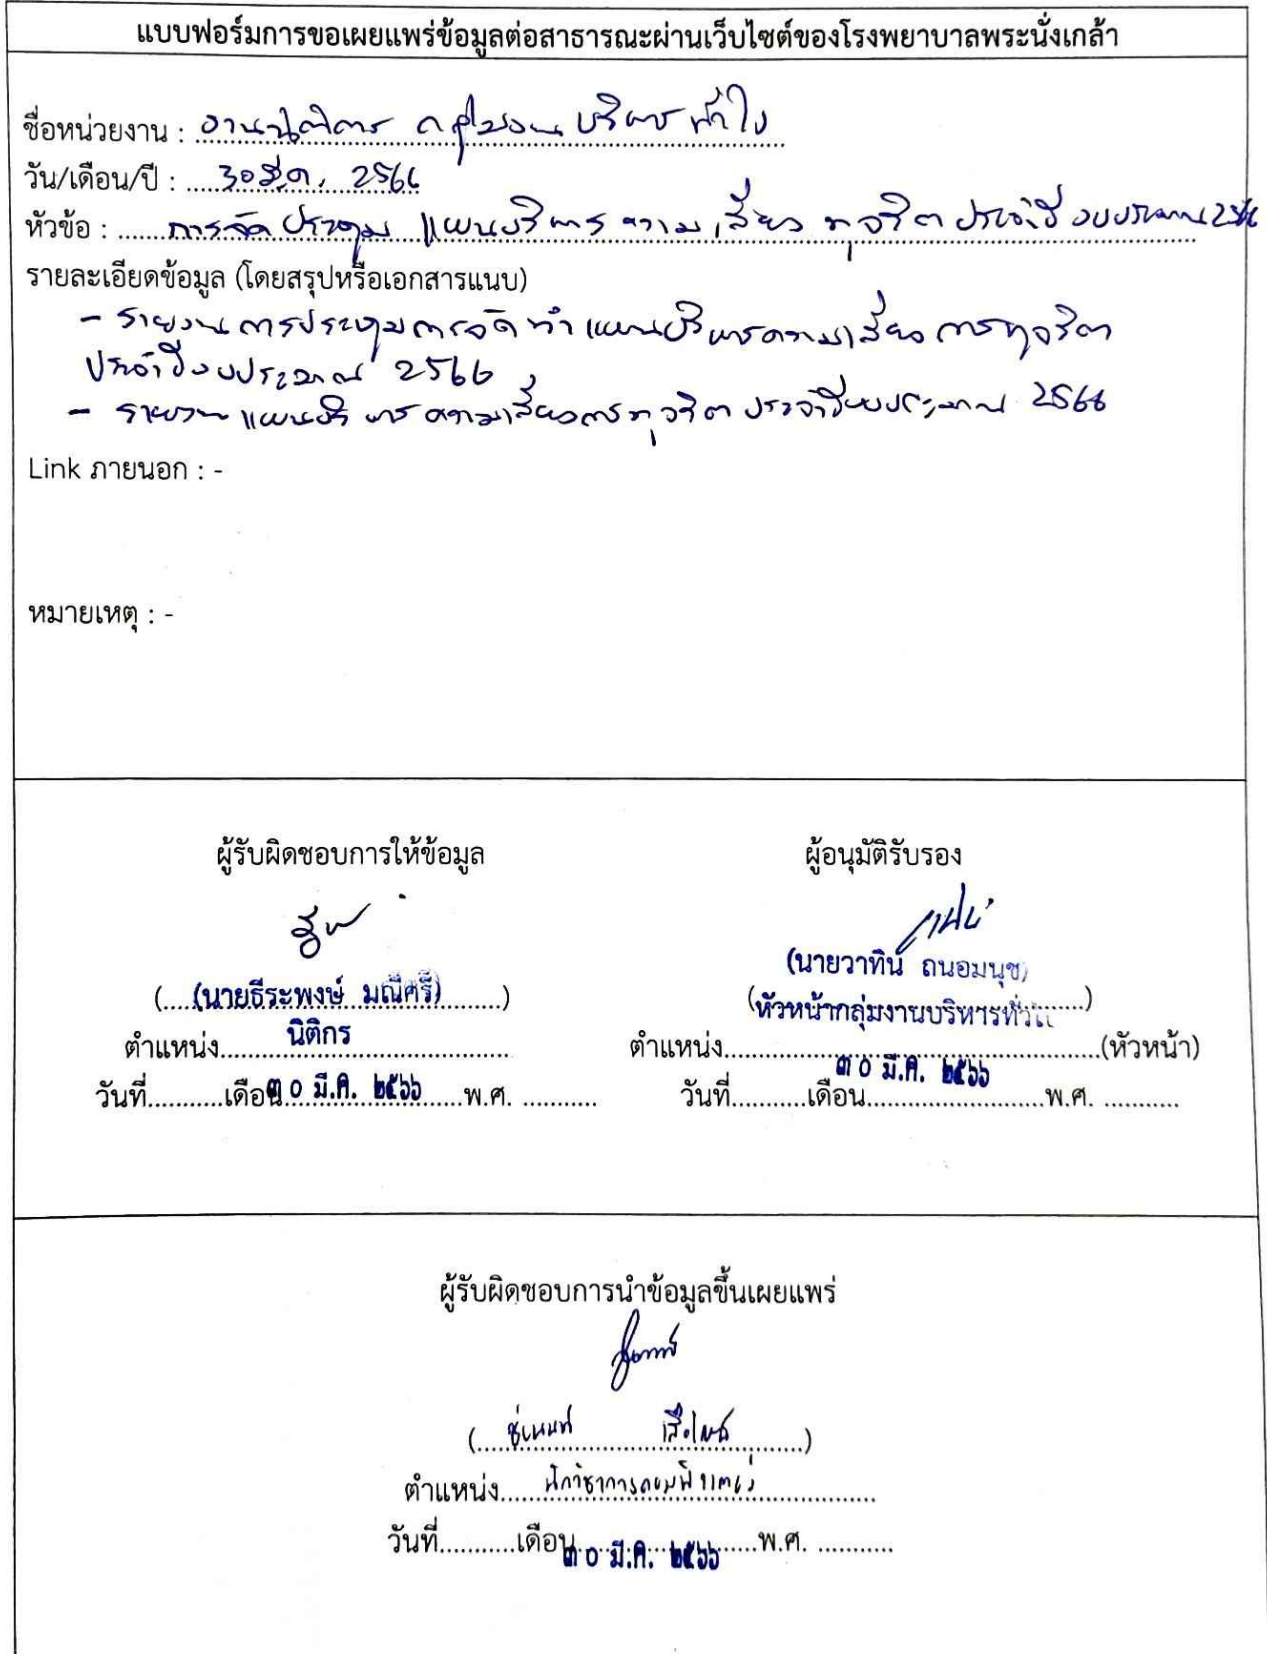 แบบฟอร์มการขอเผยแพร่ข้อมูลต่อสาธารณะผ่านเว็บไซต์ของโรงพยาบาลพระนั่งเกล้า
ชื่อหน่วยงาน : งานนิติการ กลุ่มงานบริหารทั่วไป
วัน/เดือน/ปี : 30 มี.ค. 2566
หัวข้อ : การจัดประชุม แผนบริหารความเสี่ยงทุจริต ประจำปีงบประมาณ 2566
รายละเอียดข้อมูล (โดยสรุปหรือเอกสารแนบ)
- รายงานการประชุมการจัดทำแผนบริหารความเสี่ยงการทุจริต
ประจำปีงบประมาณ 2566
- รายงานแผนบริหารความเสี่ยงการทุจริต ประจำปีงบประมาณ 2566
Link ภายนอก : -
หมายเหตุ : -
ผู้รับผิดชอบการให้ข้อมูล ผู้อนุมัติรับรอง
(....(นายธีระพงษ์ มณีศรี)........) (นายวาทิน ถนอมนุช)
ตำแหน่ง........นิติกร........ (หัวหน้ากลุ่มงานบริหารทั่วไป....)
ตำแหน่ง........(หัวหน้า)
วันที่...........เดือน ๓๐ มี.ค. ๒๕๖๖ ......พ.ศ. ........... วันที่...........เดือน ๓๐ มี.ค. ๒๕๖๖ ......พ.ศ. ...........
ผู้รับผิดชอบการนำข้อมูลขึ้นเผยแพร่
ตำแหน่ง.....นักวิชาการคอมพิวเตอร์...............
วันที่...........เดือน ๓๐ มี.ค. ๒๕๖๖ ......พ.ศ. ...........